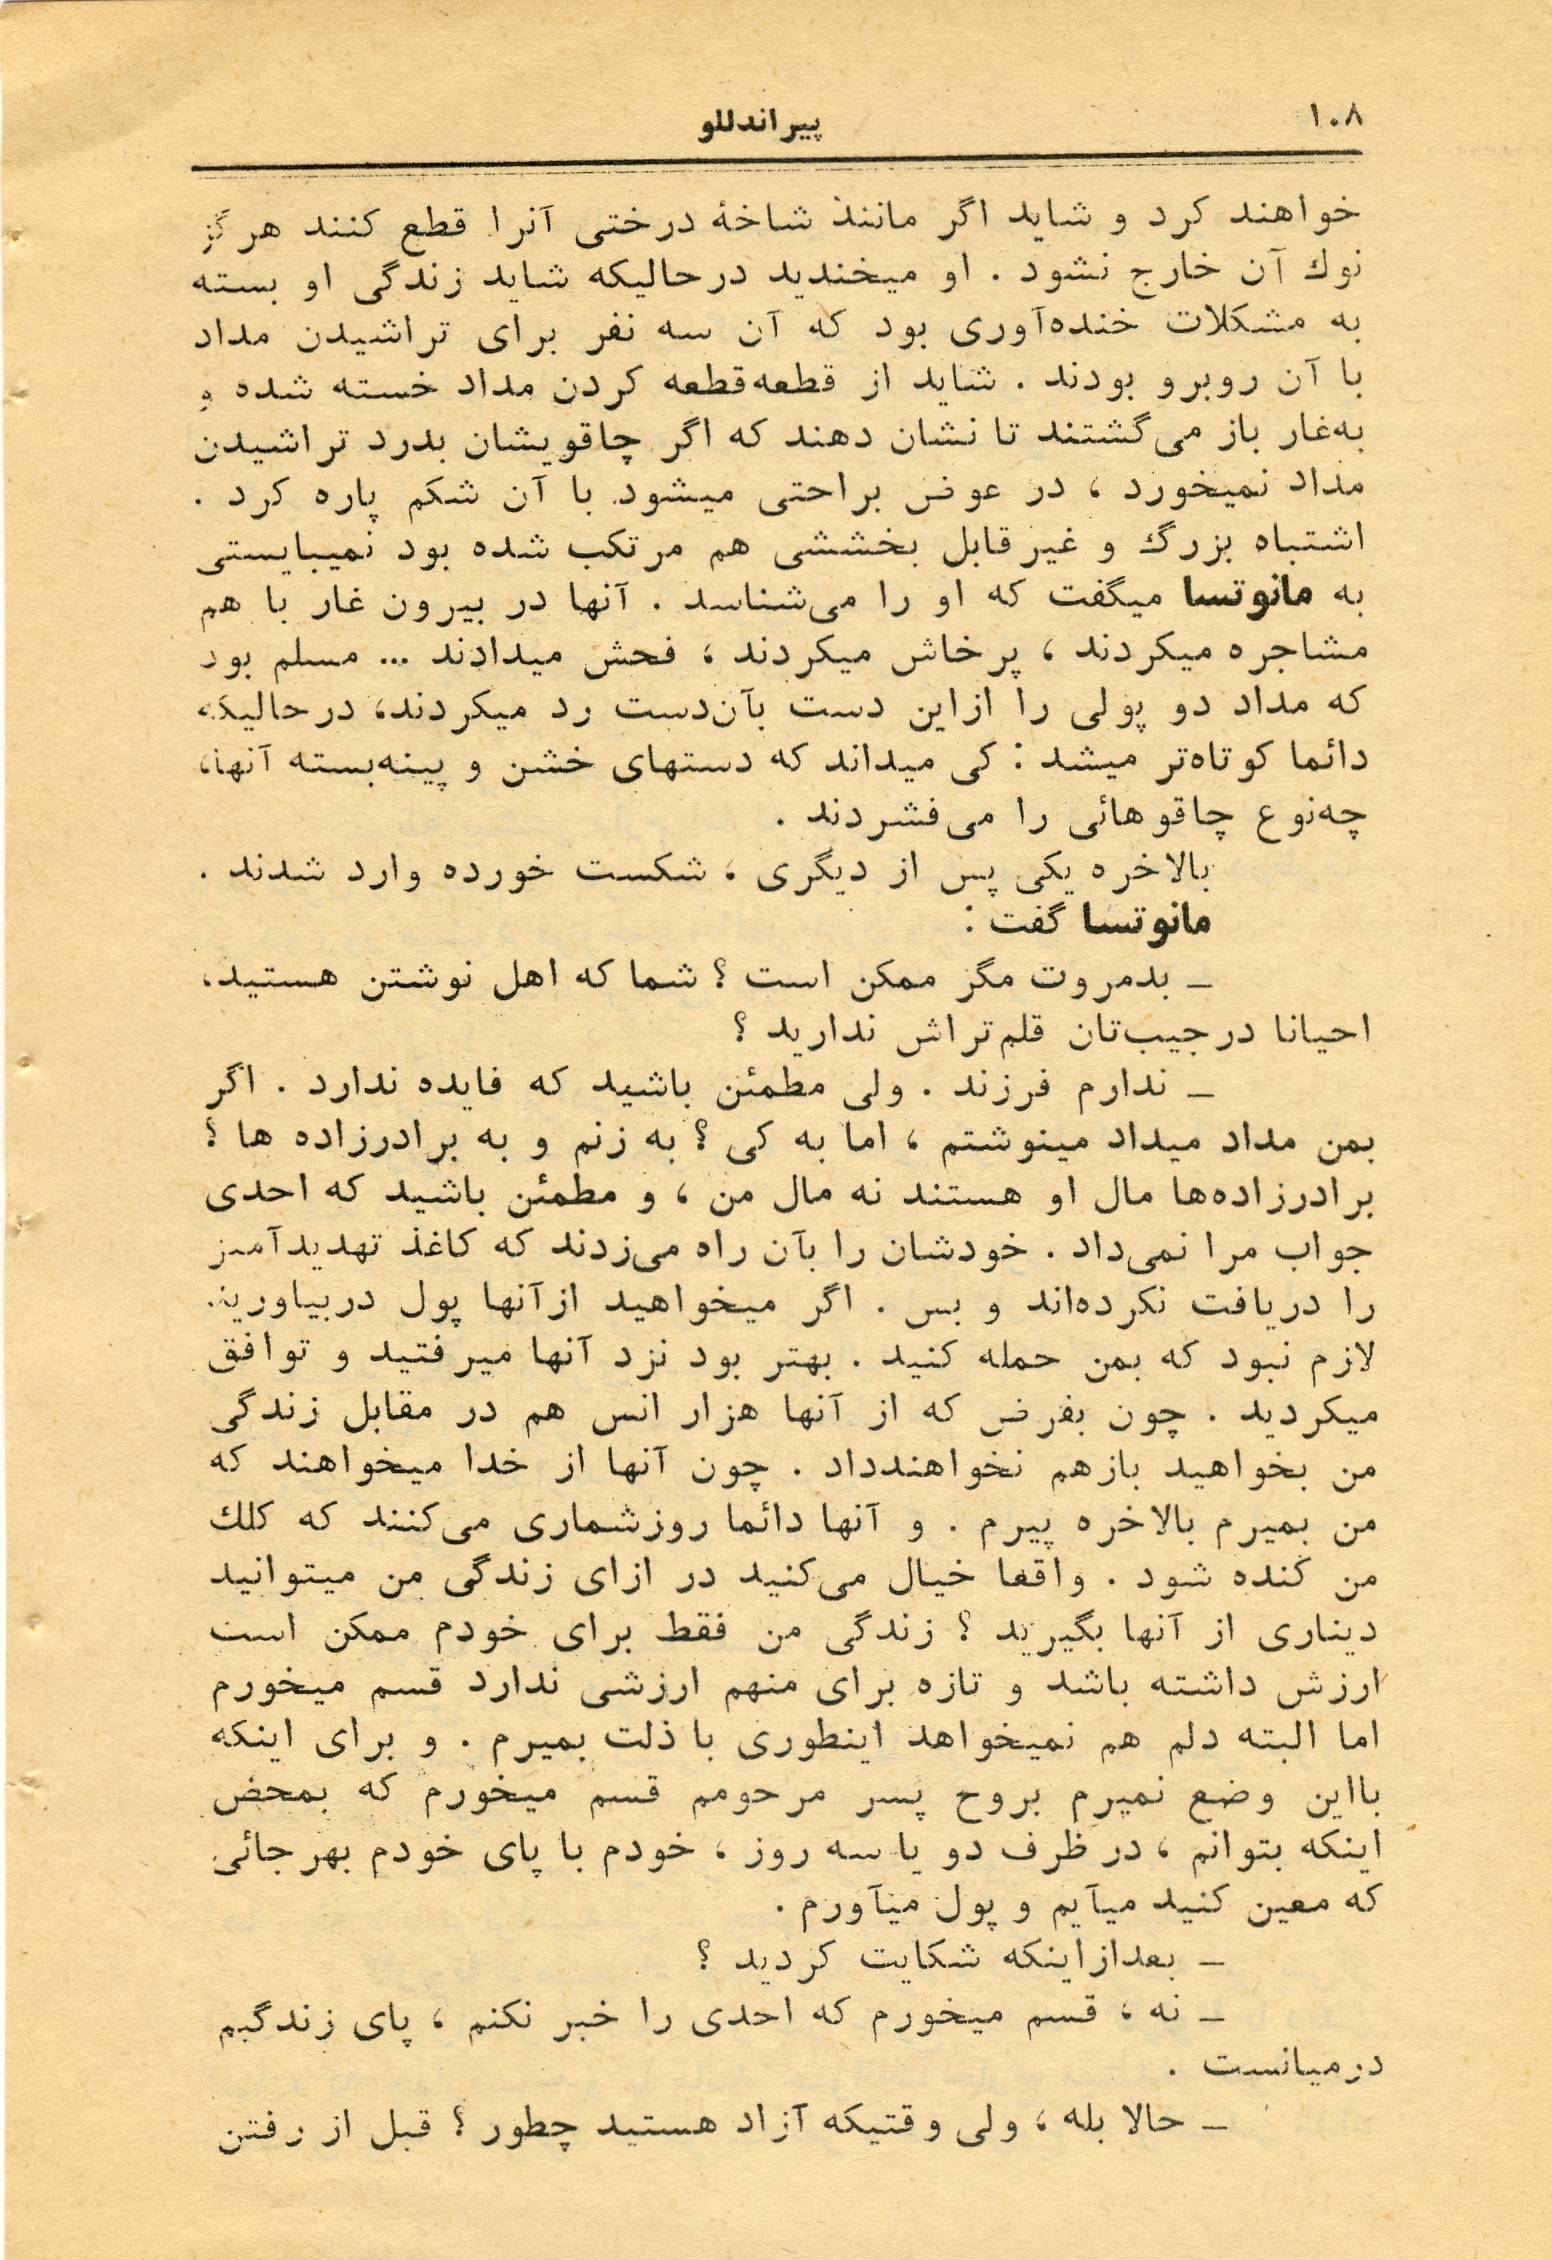 ۱۰۸
پیراندللو
خواهند کرد و شاید اگر مانند شاخهٔ درختی آنرا قطع کنند هرگز
نوك آن خارج نشود . او میخندید درحالیکه شاید زندگی او بسته
به مشکلات خنده‌آوری بود که آن سه نفر برای تراشیدن مداد
با آن روبرو بودند . شاید از قطعه‌قطعه کردن مداد خسته شده و
به‌غار باز می‌گشتند تا نشان دهند که اگر چاقویشان بدرد تراشیدن
مداد نمیخورد ، در عوض براحتی میشود با آن شکم پاره کرد .
اشتباه بزرگ و غیرقابل بخششی هم مرتکب شده بود نمیبایستی
به مانوتسا میگفت که او را می‌شناسد . آنها در بیرون غار با هم
مشاجره میکردند ، پرخاش میکردند ، فحش میدادند ... مسلم بود
که مداد دو پولی را ازاین دست بآن‌دست رد میکردند، درحالیکه
دائما کوتاه‌تر میشد : کی میداند که دستهای خشن و پینه‌بسته آنها،
چه‌نوع چاقوهائی را می‌فشردند .
بالاخره یکی پس از دیگری ، شکست خورده وارد شدند .
مانوتسا گفت :
ـ بدمروت مگر ممکن است ؟ شما که اهل نوشتن هستید،
احیانا درجیب‌تان قلم‌تراش ندارید ؟
ـ ندارم فرزند . ولی مطمئن باشید که فایده ندارد . اگر
بمن مداد میداد مینوشتم ، اما به کی ؟ به زنم و به برادرزاده ها ؟
برادرزاده‌ها مال او هستند نه مال من ، و مطمئن باشید که احدی
جواب مرا نمی‌داد . خودشان را بآن راه می‌زدند که کاغذ تهدیدآمیز
را دریافت نکرده‌اند و بس . اگر میخواهید ازآنها پول دربیاورید.
لازم نبود که بمن حمله کنید . بهتر بود نزد آنها میرفتید و توافق
میکردید . چون بفرض که از آنها هزار انس هم در مقابل زندگی
من بخواهید بازهم نخواهندداد . چون آنها از خدا میخواهند که
من بمیرم بالاخره پیرم . و آنها دائما روزشماری می‌کنند که کلك
من کنده شود . واقعا خیال می‌کنید در ازای زندگی من میتوانید
دیناری از آنها بگیرید ؟ زندگی من فقط برای خودم ممکن است
ارزش داشته باشد و تازه برای منهم ارزشی ندارد قسم میخورم
اما البته دلم هم نمیخواهد اینطوری با ذلت بمیرم . و برای اینکه
بااین وضع نمیرم بروح پسر مرحومم قسم میخورم که بمحض
اینکه بتوانم ، در ظرف دو یا سه روز ، خودم با پای خودم بهرجائی
که معین کنید میآیم و پول میآورم .
ـ بعدازاینکه شکایت کردید ؟
ـ نه ، قسم میخورم که احدی را خبر نکنم ، پای زندگیم
درمیانست .
ـ حالا بله ، ولی وقتیکه آزاد هستید چطور ؟ قبل از رفتن